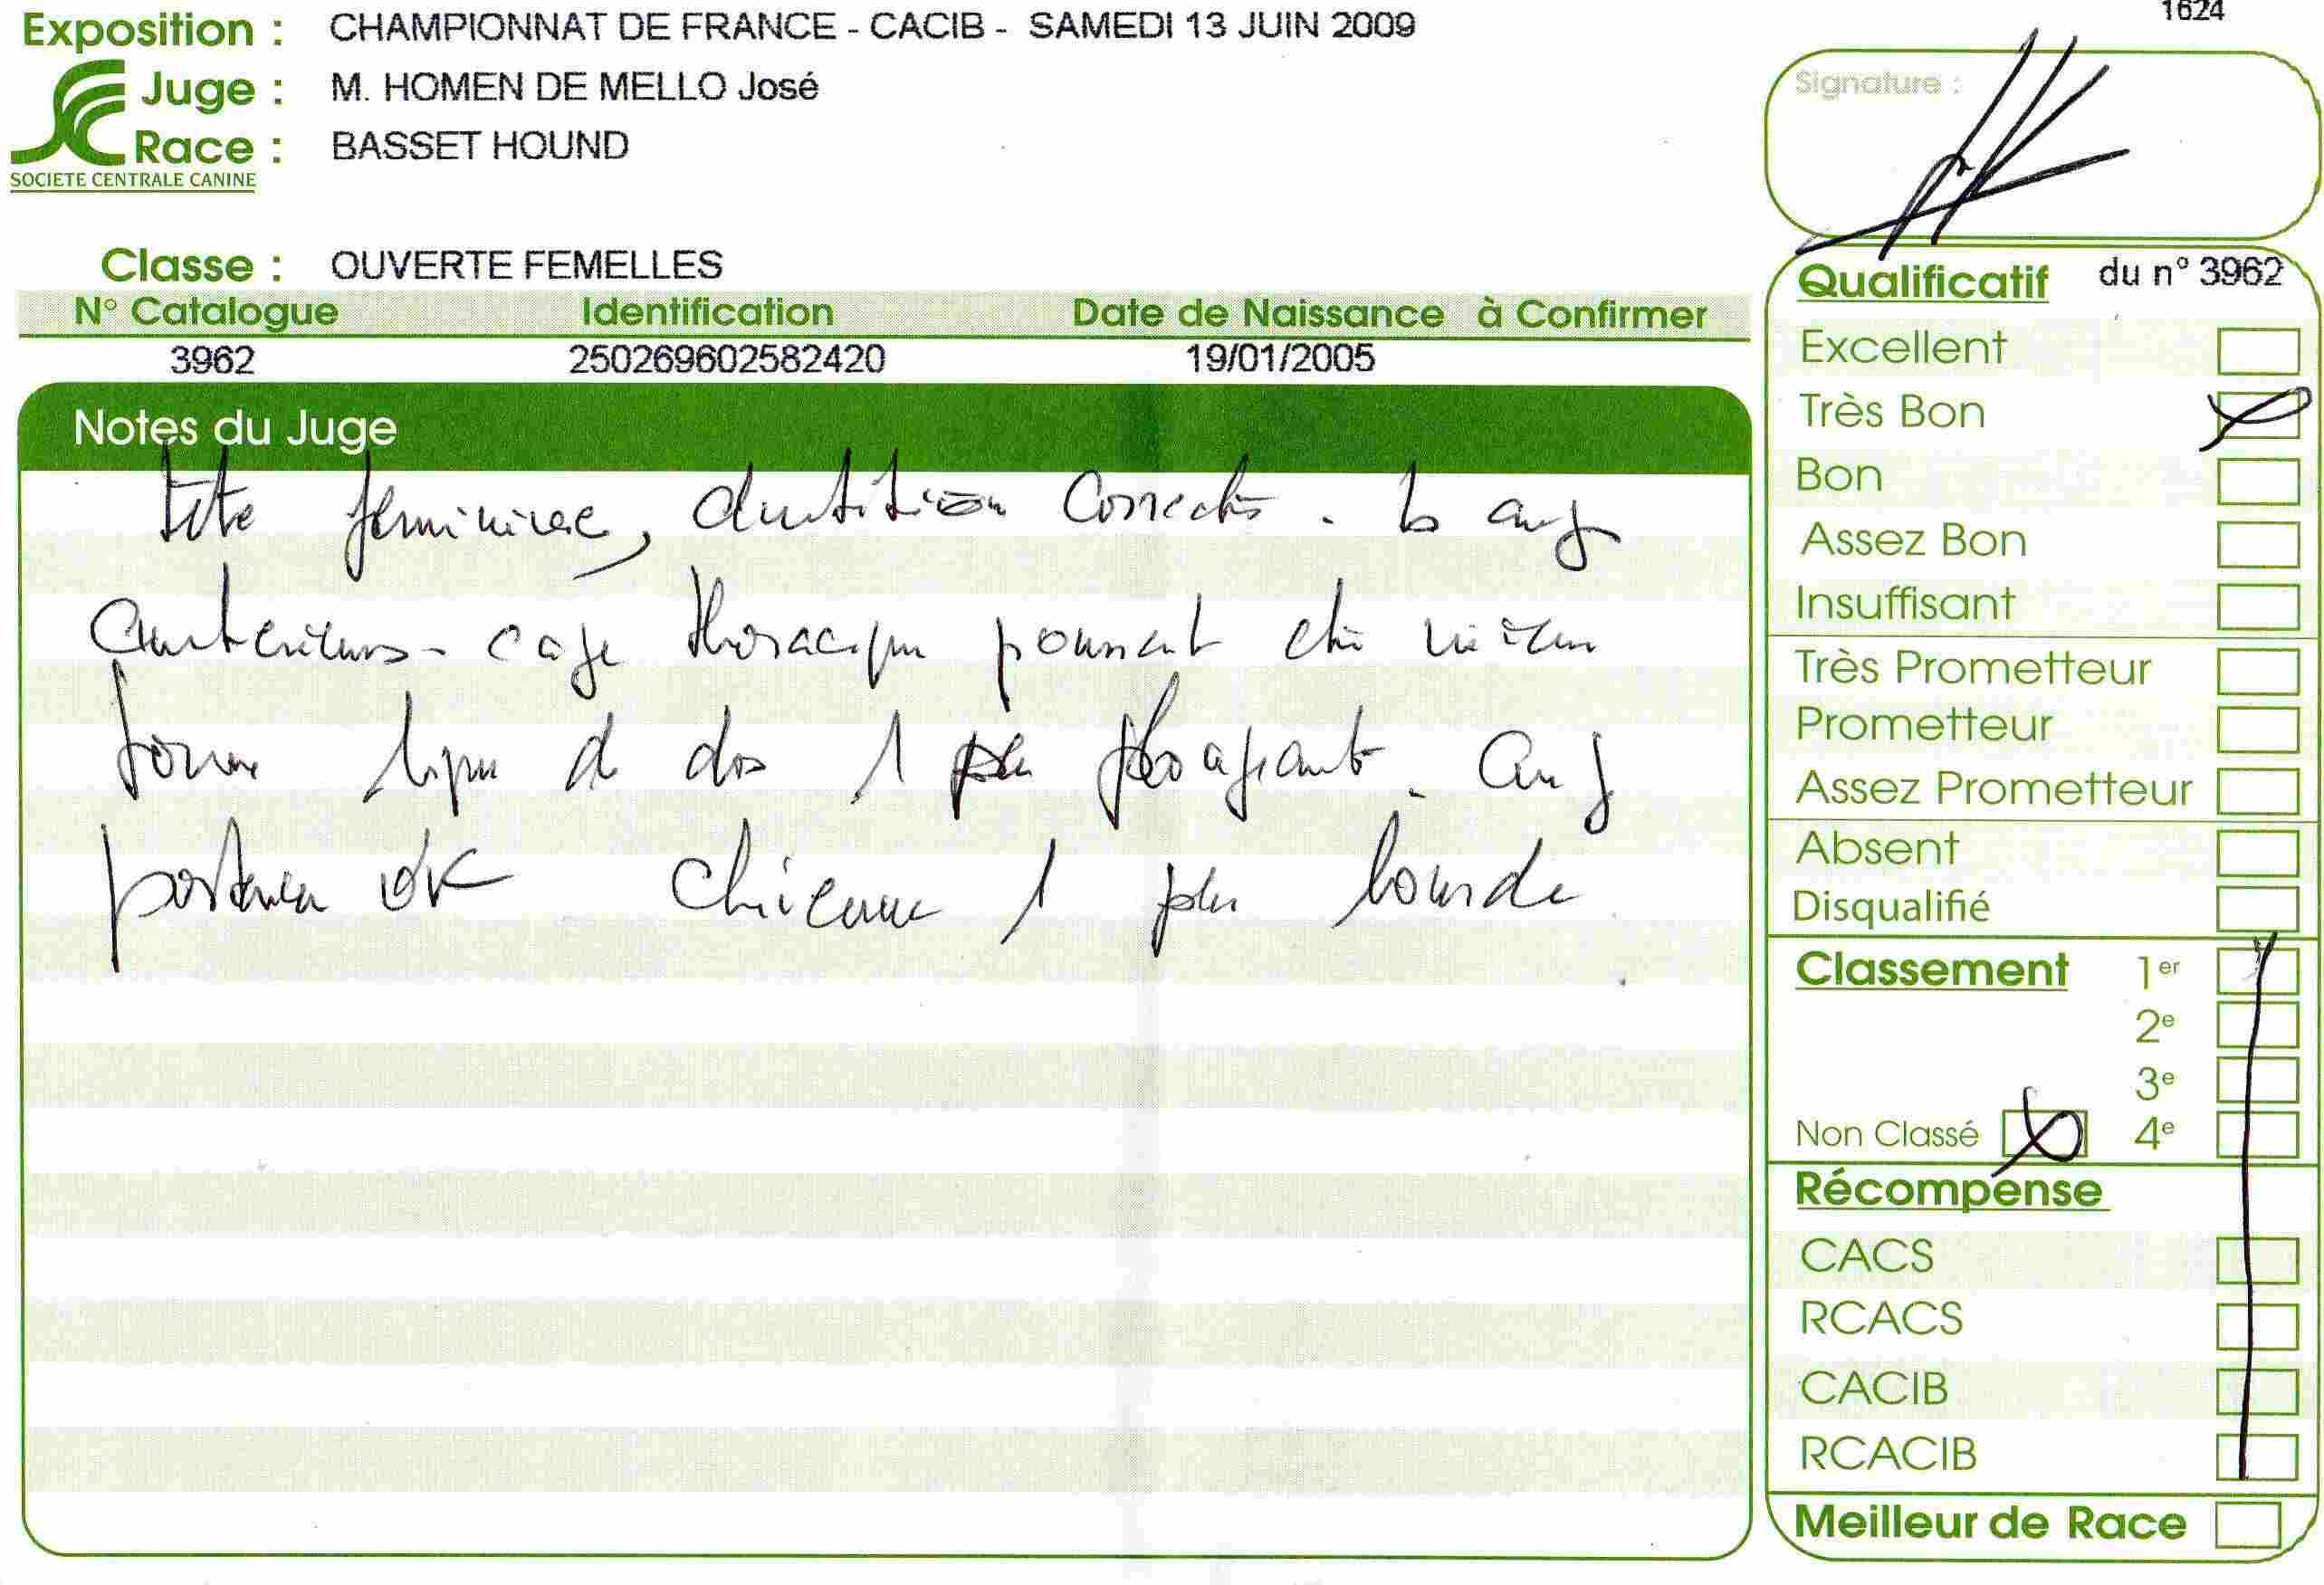 1624
Exposition : CHAMPIONNAT DE FRANCE - CACIB - SAMEDI 13 JUIN 2009
Juge : M. HOMEN DE MELLO José
Race : BASSET HOUND
SOCIETE CENTRALE CANINE
Classe : OUVERTE FEMELLES
N° Catalogue Identification Date de Naissance à Confirmer
3962 250269602582420 19/01/2005
Notes du Juge
tete feminine, dentition correcte . b ang
anterieurs - cage thoracique pourrait etre mieux
ligne de dos 1 peu plongeant . ang
posterieur OK chienne 1 peu lourde
Signature :
Qualificatif du n° 3962
Excellent
Très Bon
Bon
Assez Bon
Insuffisant
Très Prometteur
Prometteur
Assez Prometteur
Absent
Disqualifié
Classement 1er
2e
3e
Non Classé 4e
Récompense
CACS
RCACS
CACIB
RCACIB
Meilleur de Race